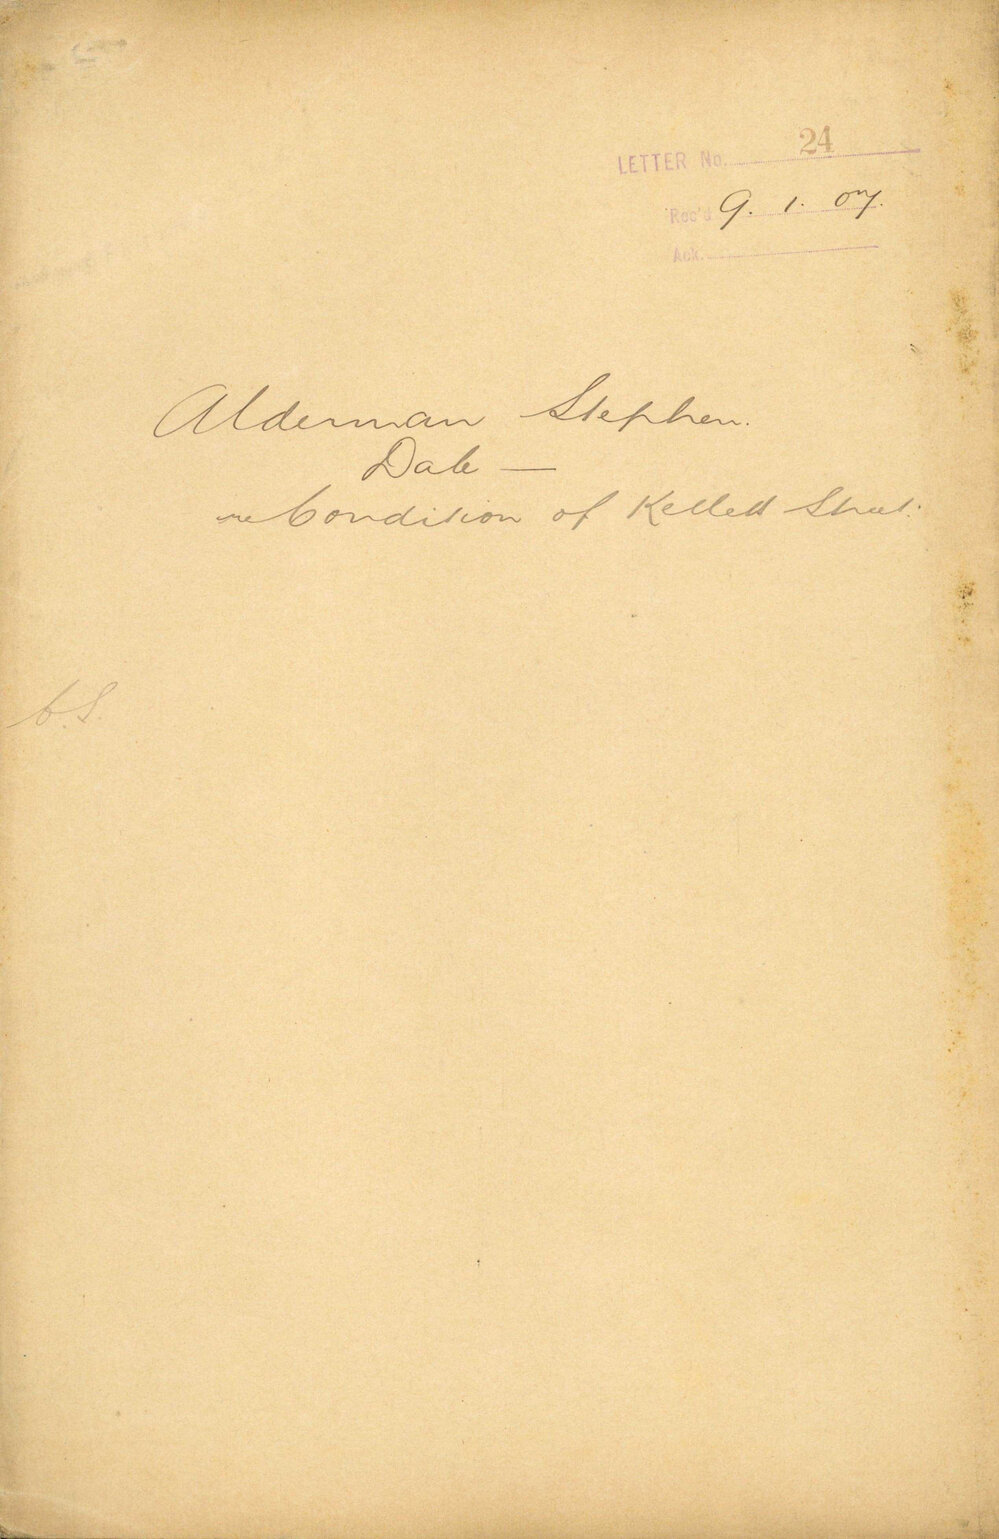 LETTER No. 24
Rec'd 9. 1. 07.
Ack.
Alderman Stephen.
Dale —
re Condition of Kellett Street.
C.S.